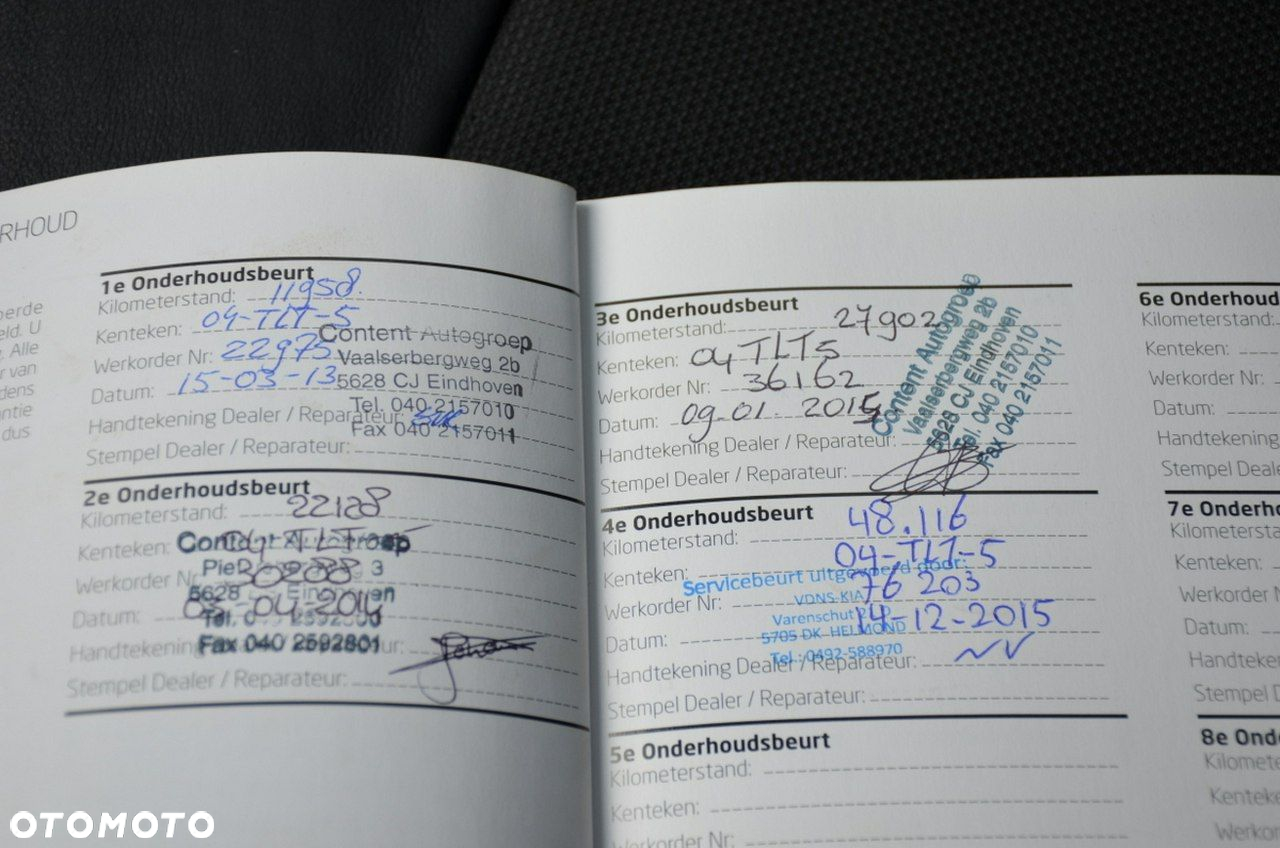 RHOUD
1e Onderhoudsbeurt
Kilometerstand: 11958
Kenteken: 04-TLT-5
Werkorder Nr: 22975
Datum: 15-03-13
Handtekening Dealer / Reparateur:
Stempel Dealer / Reparateur:
Content Autogroep
Vaalserbergweg 2b
5628 CJ Eindhoven
Tel. 040 2157010
Fax 040 2157011
2e Onderhoudsbeurt
Kilometerstand: 22128
Kenteken: 04 TLT
Werkorder Nr 30288
Datum: 03-04-2014
Handtekening
Stempel Dealer / Reparateur:
Content Autogroep
3
5628 Eindhoven
Tel. 040 2592800
Fax 040 2592801
erde
eld. U
Alle
r van
dens
ntie
dus
3e Onderhoudsbeurt
Kilometerstand: 27902
Kenteken: 04 TLT5
Werkorder Nr: 36162
Datum: 09-01. 2015
Handtekening Dealer / Reparateur:
Stempel Dealer / Reparateur:
Content Autogroep
Vaalserbergweg 2b
5628 CJ Eindhoven
Tel. 040 2157010
Fax 040 2157011
4e Onderhoudsbeurt
Kilometerstand: 48.116
Kenteken: 04-TLT-5
Werkorder Nr: 76 203
Datum: 14-12-2015
Handtekening Dealer / Reparateur:
Stempel Dealer / Reparateur:
Servicebeurt uitgevoerd door:
VDNS-KIA
Varenschut
5705 DK HELMOND
Tel.:0492-588970
5e Onderhoudsbeurt
Kilometerstand:
Kenteken:
Werkorder Nr:
6e Onderhoud
Kilometerstan
Kenteken:
Werkorder Nr:
Datum:
Handtekening
Stempel Deale
7e Onderho
Kilometersta
Kenteken:
Werkorder N
Datum:
Handteke
Stempel D
8e Ond
Kilomete
Kenteke
Werkor
OTOMOTO